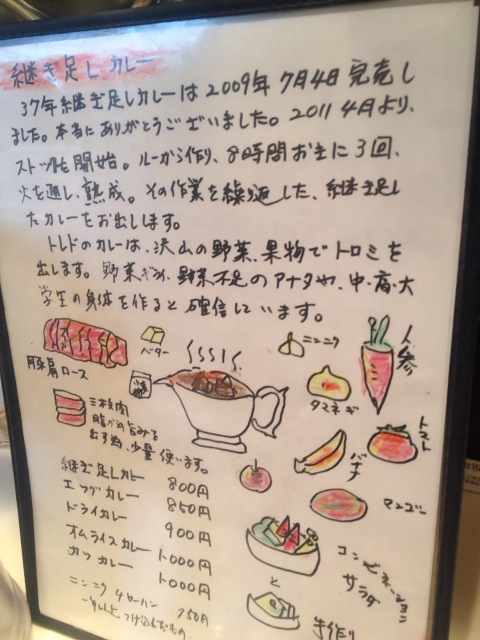 継ぎ足しカレー
37年継ぎ足しカレーは2009年7月4日完売し
ました。本当にありがとうございました。2011 4月より、
ストック を開始。ルーから作り、8時間おきに3回、
火を通し、熟成。その作業を繰り返した、継ぎ足し
たカレーをお出しします。
トレドのカレーは、沢山の野菜、果物でトロミを
出します。野菜ぎらい、野菜不足のアナタや、中・高・大
学生の身体を作ると確信しています。
豚肩ロース
バター
ニンニク
人参
三枚肉
脂がの旨みを
出す為、少量使います。
タマネギ
トマト
バナナ
マンゴー
継ぎ足しカレー 800円
エッグカレー 850円
ドライカレー 900円
オムライスカレー 1,000円
カツカレー 1,000円
ニンニク 250円
一年以上つけ込んだもの。
コンビネーション
サラダ
と
手作り